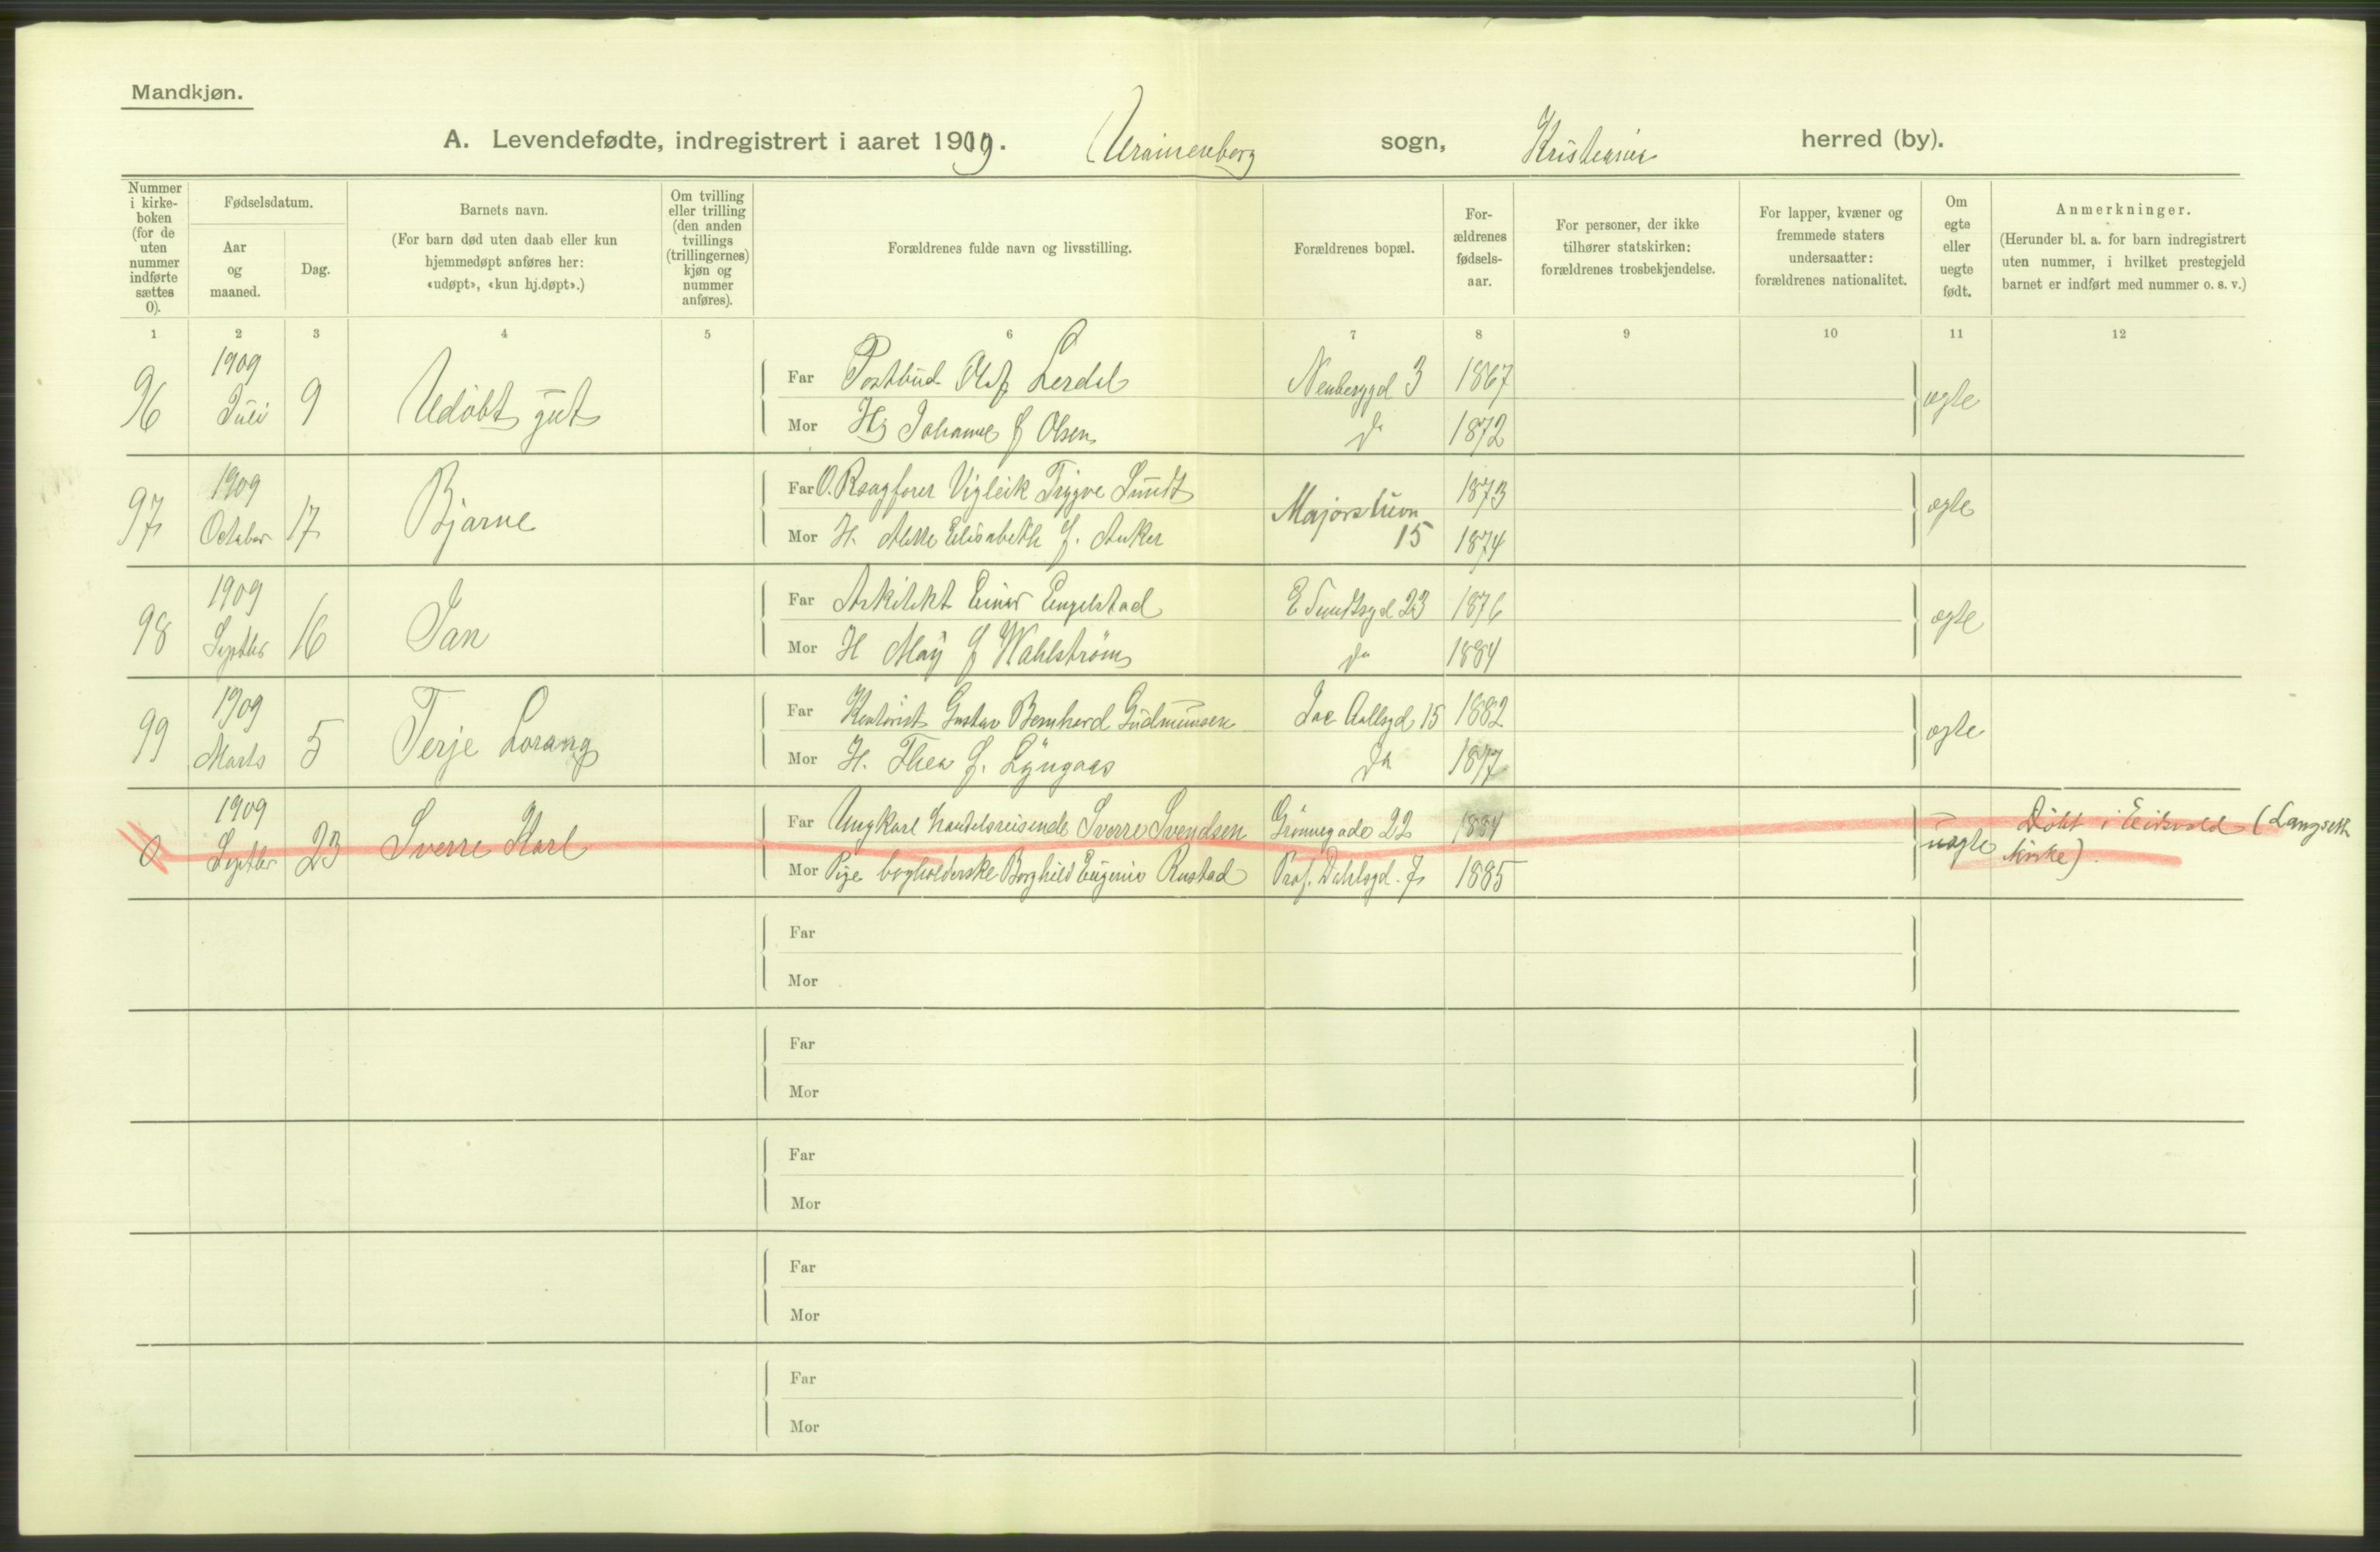 Mandkjøn.
A. Levendefødte, indregistrert i aaret 1909. Uranienborg sogn, Kristiania herred (by).
Nummer i kirke-boken (for de uten nummer indførte sættes 0).
Fødselsdatum.
Aar og maaned.
Dag.
Barnets navn.
(For barn død uten daab eller kun hjemmedøpt anføres her: «udøpt», «kun hj.døpt».)
Om tvilling eller trilling (den anden tvillings (trillingernes) kjøn og nummer anføres).
Forældrenes fulde navn og livsstilling.
Forældrenes bopæl.
For-ældrenes fødsels-aar.
For personer, der ikke tilhører statskirken: forældrenes trosbekjendelse.
For lapper, kvæner og fremmede staters undersaatter: forældrenes nationalitet.
Om egte eller uegte født.
Anmerkninger.
(Herunder bl. a. for barn indregistrert uten nummer, i hvilket prestegjeld barnet er indført med nummer o. s. v.)
1 2 3 4 5 6 7 8 9 10 11 12
96 1909 Juli 9 Udøbt gut
Far Postbud Olaf Lerdal 3 1867 ægte
Mor Hs Johanne f Olsen Do 1872
97 1909 October 17 Bjarne
Far O. Rsagfører Vigleik Trygve Sundt Majorstuvn 15 1873 ægte
Mor H. Elisabeth f. Anker 1874
98 1909 Septbr 16 Jan
Far Arkitekt Einar Engelstad E Sundtsgd 23 1876 ægte
Mor H May f Wahlstrøm Do 1884
99 1909 Marts 5 Terje Lorang
Far Kontorist Gustav Bernhard Gudmunsen Jac Aallsgd 15 1882 ægte
Mor H. Thea f. Lyngaas Do
0 1909 Septbr 23 Sverre Karl
Far Ungkarl handelsreisende Sverre Svendsen Grønnegade 22 1884 uægte Døbt i Eidsvold (Langseth kirke).
Mor Pige bogholderske Borghild Eugenie Rustad Prof. Dahlsgd. 7 1885
Far
Mor
Far
Mor
Far
Mor
Far
Mor
Far
Mor